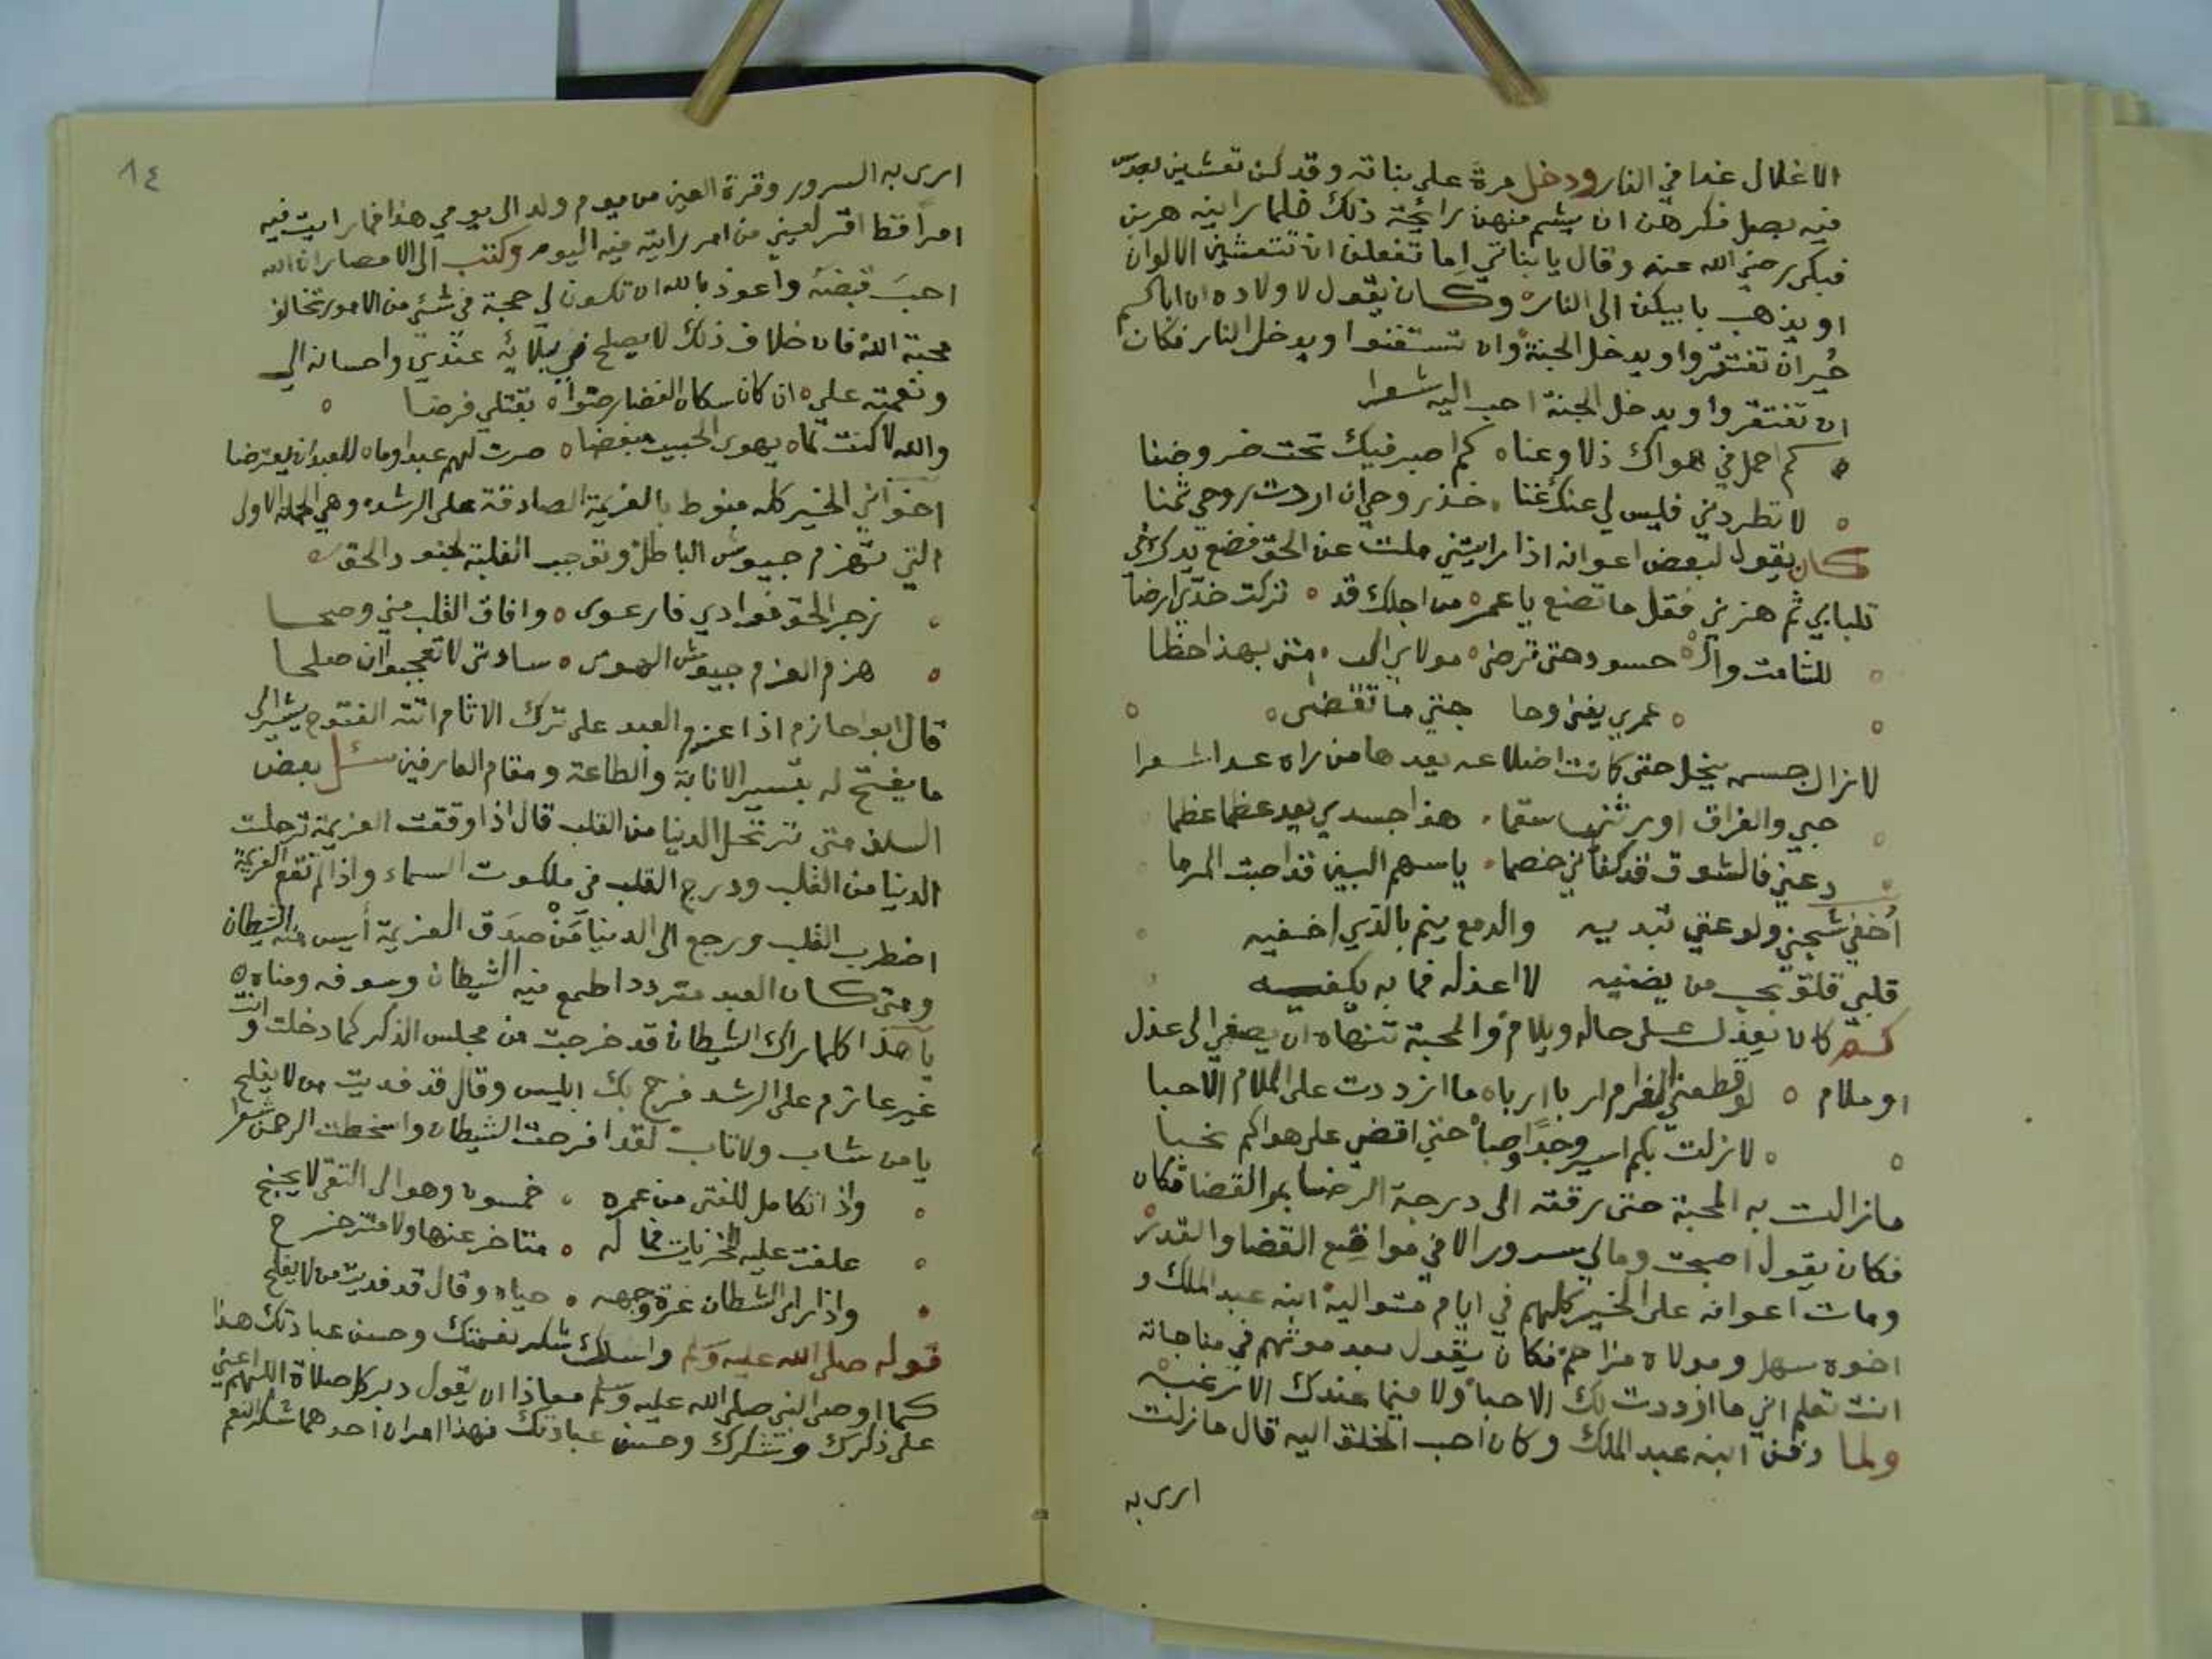 الاغلال غدا في النار ودخل مرة على بناته وقد كن تعشين بعدس
فيه بصل فكرهن ان يشم منهن رائحة ذلك فلما راينه هربن
فبكى رضي الله عنه وقال يا بناتي اما تفعلن ان تتعشين الالوان
او يذهب بابيكن الى النار وكان يقول لاولاده ان اباكم
خُيران تفتقروا ويدخل الجنة وان تستغنوا ويدخل النار فكان
ان تفتقروا ويدخل الجنة احب اليه شعرا
كم احمل في هواك ذلا وعناه كم اصبر فيك تحت ضر وضنا
لا تطردني فليس لي عنك غنا خذ روحي ان اردت روحي ثمنا
كان يقول لبعض اعوانه اذا رايتني ملت عن الحق فضع يدك في
تلبابي ثم هزني فقل ما تصنع يا عمر من اجلك قد تركت خدي ارضا
للشامت والحسود حتى ترضى مولاي الى متى بهذا احظا
عمري يفنى وحا جتي ما تقضى
لا زال جسمه ينحل حتى كانت اضلاعه يعدها من راه عدا شعرا
حبي والفراق اورثني سقما هذا جسدي يعد عظما عظما
دعني فالشوق قد كفاني خصما يا سهم البين قد اصبت المرما
أخفي شجني ولوعتي تبديه والدمع ينم بالذي اخفيه
قلبي قلق بحب من يضنيه لا اعذله فما به يكفيه
كم كان يعذل على حاله ويلام والمحبة تنهاه ان يصغي الى عذل
او ملام لو قطعني الغرام اربا اربا ما ازددت على الملام الا حبا
لا زلت بكم اسير وجد اوصبا حتى اقضي على هواكم نحبا
ما زالت به المحبة حتى رقته الى درجة الرضا بمر القضا فكان
فكان يقول اصبحت ومالي سرور الا في مواقع القضا والقدر
ومات اعوانه على الخير كلهم في ايام متوالية ابنه عبد الملك و
اخوه سهل ومولاه مزاحم فكان يقول بعد موتهم في مناجاته
انت تعلم اني ما ازددت لك الا حبا ولا فيما عندك الا رغبة
ولما دفن ابنه عبد الملك وكان احب الخلق اليه قال ما زلت
ارى به
٨٤
ارى به السرور وقرة العين من يوم ولد الى يومي هذا فما رايت فيه
امراً قط اقر لعيني من امر رايته فيه اليوم وكتب الى الامصار ان الله
احب قبضه واعوذ بالله ان تكون لي محبة في شئ من الامور تخالف
محبة الله فان خلاف ذلك لا يصلح في بلائه عندي واحسانه الي
ونعمته علي ان كان سكان الغضا رضوا بقتلي فرضا
والله لا كنت لما يهوى الحبيب مبغضا صرت لهم عبدا وما للعبد ان يعترضا
اخواني الخير كله منوط بالعزيمة الصادقة على الرشد وهي الحملة الاول
التي تهزم جيوش الباطل وتوجب الغلبة لجنود الحق
زجر الحق فوادي فارعوى وافاق القلب مني وصحا
هزم العزم جيوش الهوى سادتي لا تعجبوا ان صلحا
قال ابو حازم اذا عزم العبد على ترك الاثام اتته الفتوح يشير الى
ما يفتح له بتيسير الانابة والطاعة ومقام العارفين سئل بعض
السلف متى ترتحل الدنيا من القلب قال اذا وقعت العزيمة ترحلت
الدنيا من القلب ودرج القلب في ملكوت السماء واذا لم تقع العزيمة
اضطرب القلب ورجع الى الدنيا مَنْ صَدَق العزيمة أيس منه الشيطان
ومتى كان العبد مترددا طمع فيه الشيطان وسوفه ومناه
يا هذا كلما راك الشيطان قد خرجت من مجلس الذكر كما دخلت وانت
غير عازم على الرشد فرح بك ابليس وقال قد فديت من لا يفلح
يا من شاب ولا تاب لقد افرحت الشيطان واسخطت الرحمن شعرا
واذا تكامل للفتى من عمره خمسون وهو الى التقى لا يجنح
علقت عليه المخزيات فما له متاخر عنها ولا متزحزح
واذا راى الشيطان غرة وجهه حياه وقال قد فديت من لا يفلح
قوله صلى الله عليه وسلم واسلك شكر نعمتك وحسن عبادتك هذا
كما اوصى النبي صلى الله عليه وسلم معاذا ان يقول دبر كل صلاة اللهم اعني
على ذكرك وشكرك وحسن عبادتك فهذا امران احدهما شكر النعم